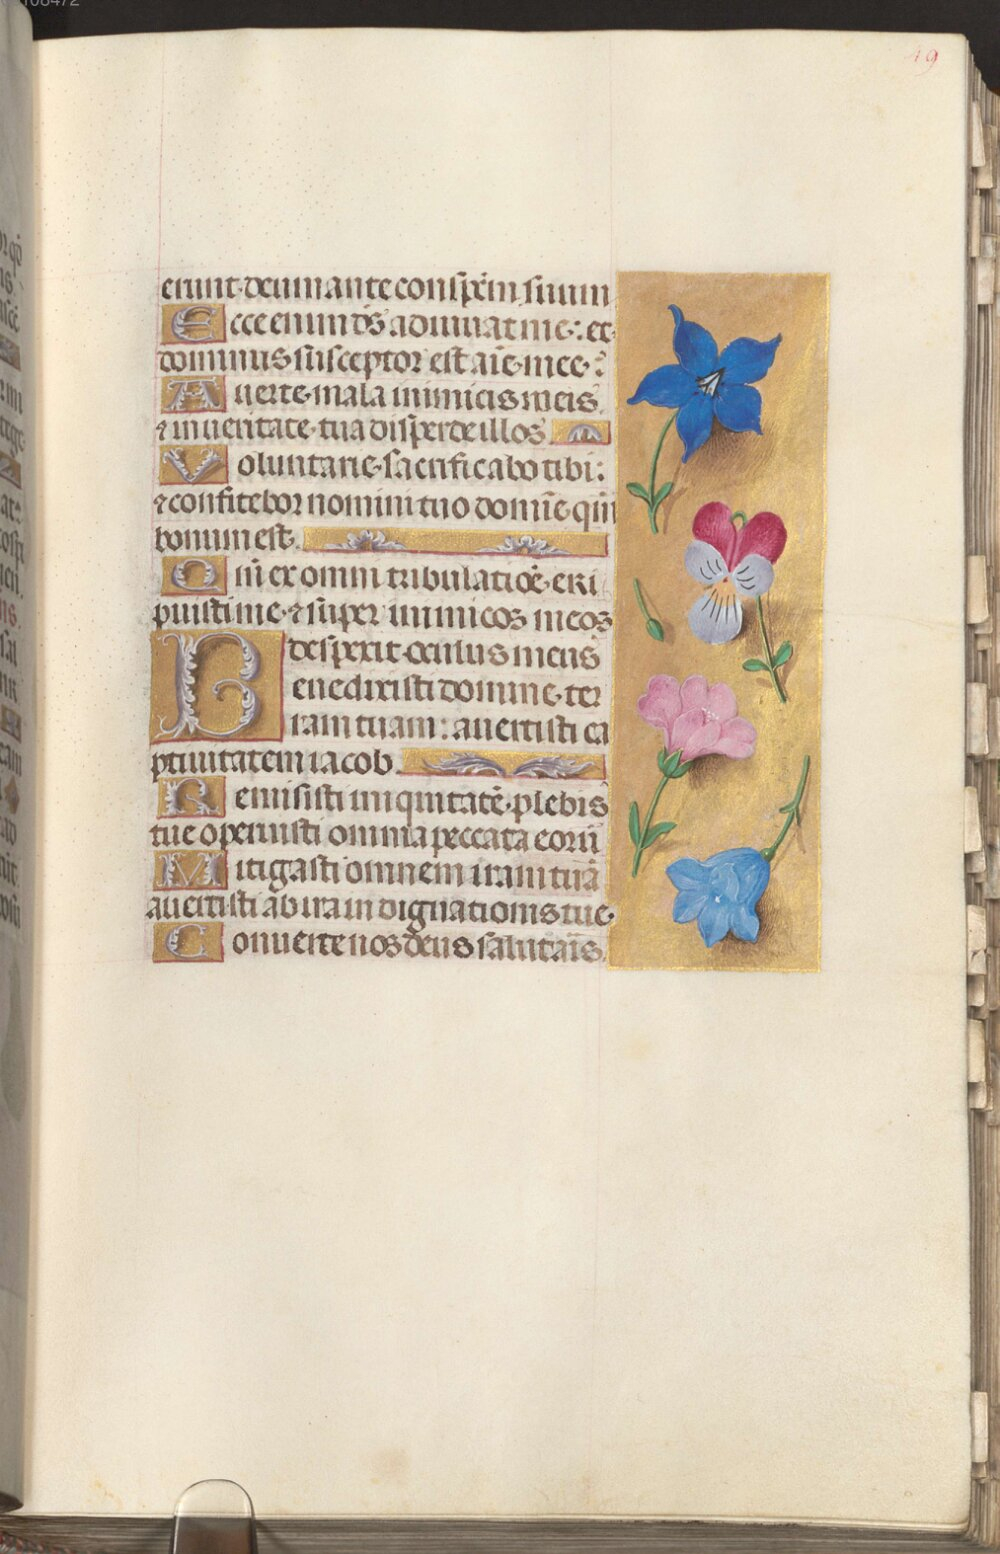 19
erunt deum ante conspẽm suum
Ecce enim ds̄ adiuuat me: et
dominus susceptor est aīe mee:
Auerte mala inimicis meis
⁊ in ueritate tua disperde illos
Voluntarie sacrificabo tibi:
⁊ confitebor nomini tuo domīe qm̄
bonum est
Qm̄ ex omni tribulatiōe eri
puisti me ⁊ super inimicos meos
despexit oculus meus
Benedixisti domine ter
ram tuam: auertisti ca
ptiuitatem iacob
Remisisti iniquitatē plebis
tue operuisti omnia peccata eorū
Mitigasti omnem iram tuā
auertisti ab ira indignationis tue
Conuerte nos deus salutaris